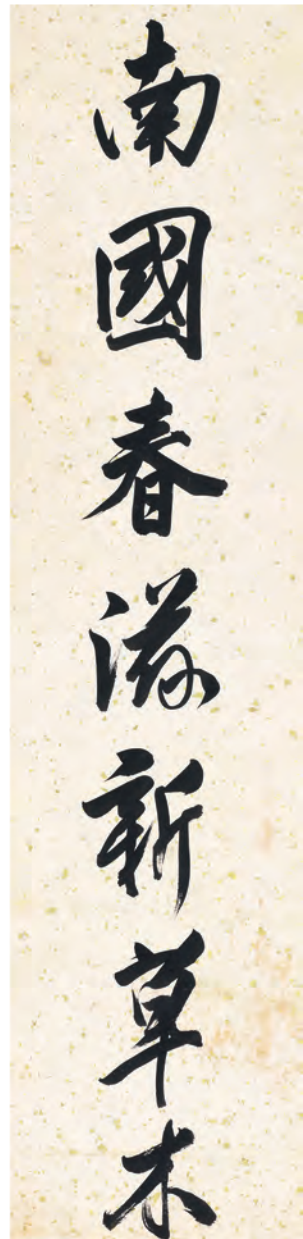 南國春滋新草木